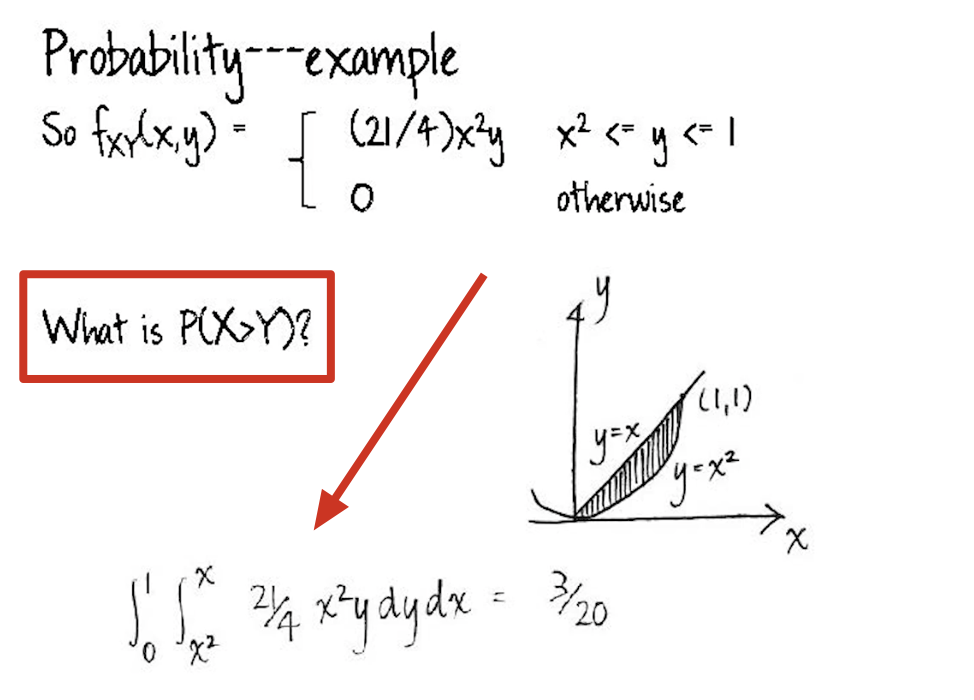 Probability---example
So fXY(x,y) = { (21/4)x²y x² <= y <= 1
0 otherwise
What is P(X>Y)?
y
(1,1)
y=x
y=x²
x
∫₀¹ ∫ₓ²ˣ 21/4 x²y dy dx = 3/20